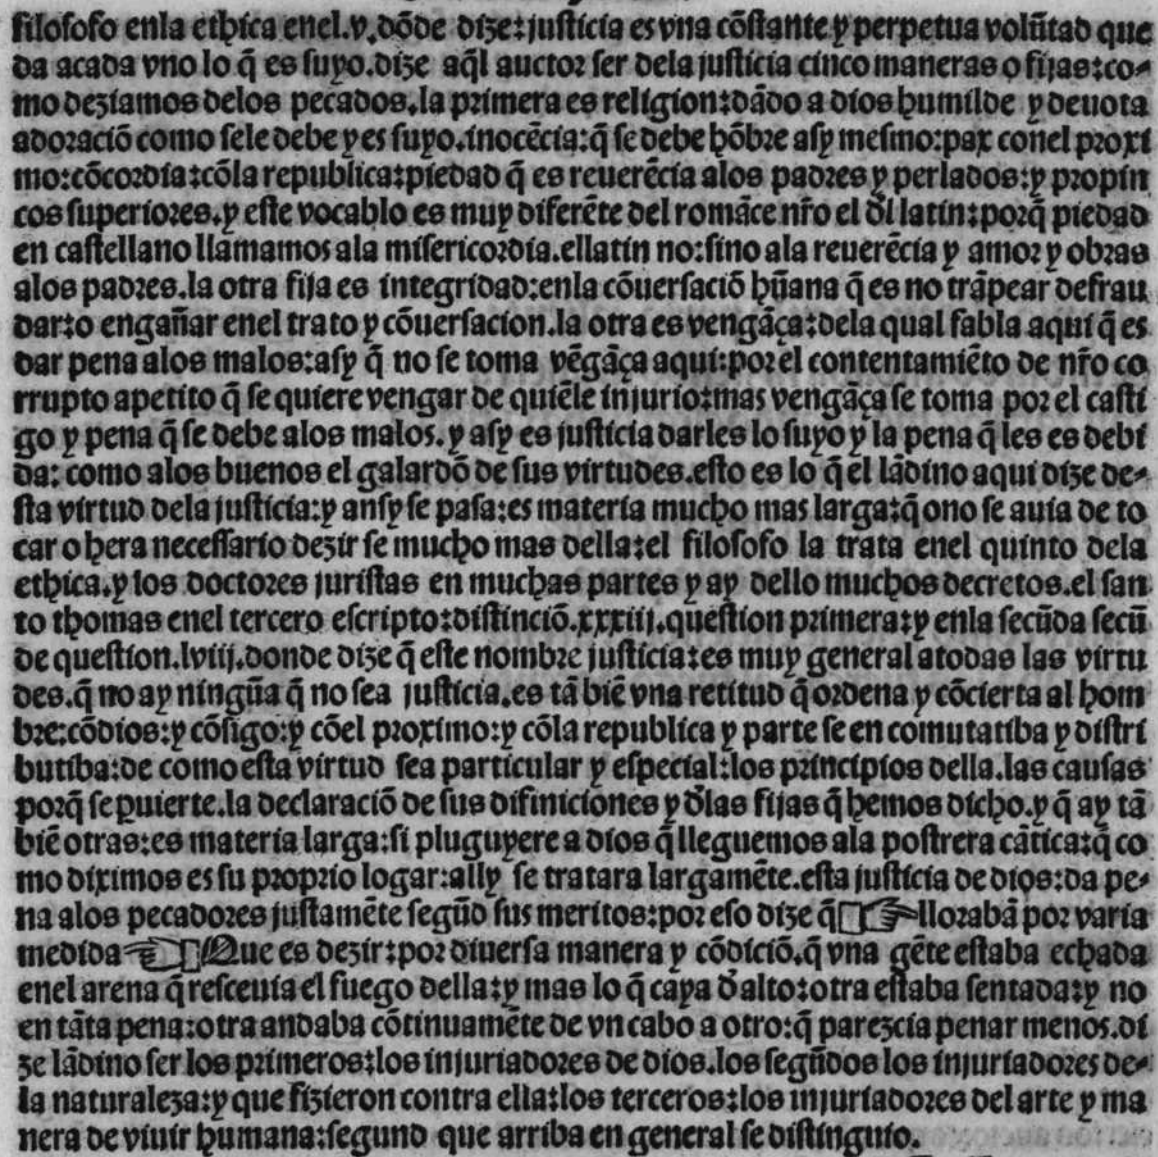 filosofo enla ethica enel.v.dõde dize:justicia es vna cõstante y perpetua volũtad que
da acada vno lo q̃ es suyo.dize aq̃l auctor ser dela justicia cinco maneras o fijas:co-
mo deziamos delos pecados.la primera es religion:dãdo a dios humilde y deuota
adoraciõ como sele debe y es suyo.inocẽcia:q̃ se debe hõbre asy mesmo:pax conel proxi
mo:cõcordia:cõla republica:piedad q̃ es reuerẽcia alos padres y perlados:y propin
cos superiores.y este vocablo es muy diferẽte del romãce nr̃o el d̃l latin:porq̃ piedad
en castellano llamamos ala misericordia.ellatin no:sino ala reuerẽcia y amor y obras
alos padres.la otra fija es integridad:enla cõuersaciõ hũana q̃ es no trãpear defrau
dar:o engañar enel trato y cõuersacion.la otra es vengãça:dela qual fabla aqui q̃ es
dar pena alos malos:asy q̃ no se toma vẽgãça aqui:por el contentamiẽto de nr̃o co
rrupto apetito q̃ se quiere vengar de quiẽle injurio:mas vengãça se toma por el casti
go y pena q̃ se debe alos malos.y asy es justicia darles lo suyo y la pena q̃ les es debi
da: como alos buenos el galardõ de sus virtudes.esto es lo q̃ el lãdino aqui dize de-
sta virtud dela justicia:y ansy se pasa:es materia mucho mas larga:q̃ ono se auia de to
car o hera necessario dezir se mucho mas della:el filosofo la trata enel quinto dela
ethica.y los doctores juristas en muchas partes y ay dello muchos decretos.el san
to thomas enel tercero escripto:distinciõ.xxxiij.question primera:y enla secũda secũ
de question.lviij.donde dize q̃ este nombre justicia:es muy general atodas las virtu
des.q̃ no ay ningũa q̃ no sea justicia.es tã biẽ vna retitud q̃ ordena y cõcierta al hom
bre:cõdios:y cõsigo:y cõel proximo:y cõla republica y parte se en comutatiba y distri
butiba:de como esta virtud sea particular y especial:los principios della.las causas
porq̃ se puierte.la declaraciõ de sus difiniciones y d̃las fijas q̃ hemos dicho.y q̃ ay tã
biẽ otras:es materia larga:si pluguyere a dios q̃ lleguemos ala postrera cãtica:q̃ co
mo diximos es su proprio logar:ally se tratara largamẽte.esta justicia de dios:da pe-
na alos pecadores justamẽte segũd sus meritos:por eso dize q̃ ☞ llorabã por varia
medida ☜ Que es dezir:por diuersa manera y cõdiciõ.q̃ vna gẽte estaba echada
enel arena q̃ resceuia el fuego della:y mas lo q̃ caya d̃ alto:otra estaba sentada:y no
en tãta pena:otra andaba cõtinuamẽte de vn cabo a otro:q̃ parezcia penar menos.di
ze lãdino ser los primeros:los injuriadores de dios.los segũdos los injuriadores de-
la naturaleza:y que fizieron contra ella:los terceros:los injuriadores del arte y ma
nera de viuir humana:segund que arriba en general se distinguio.